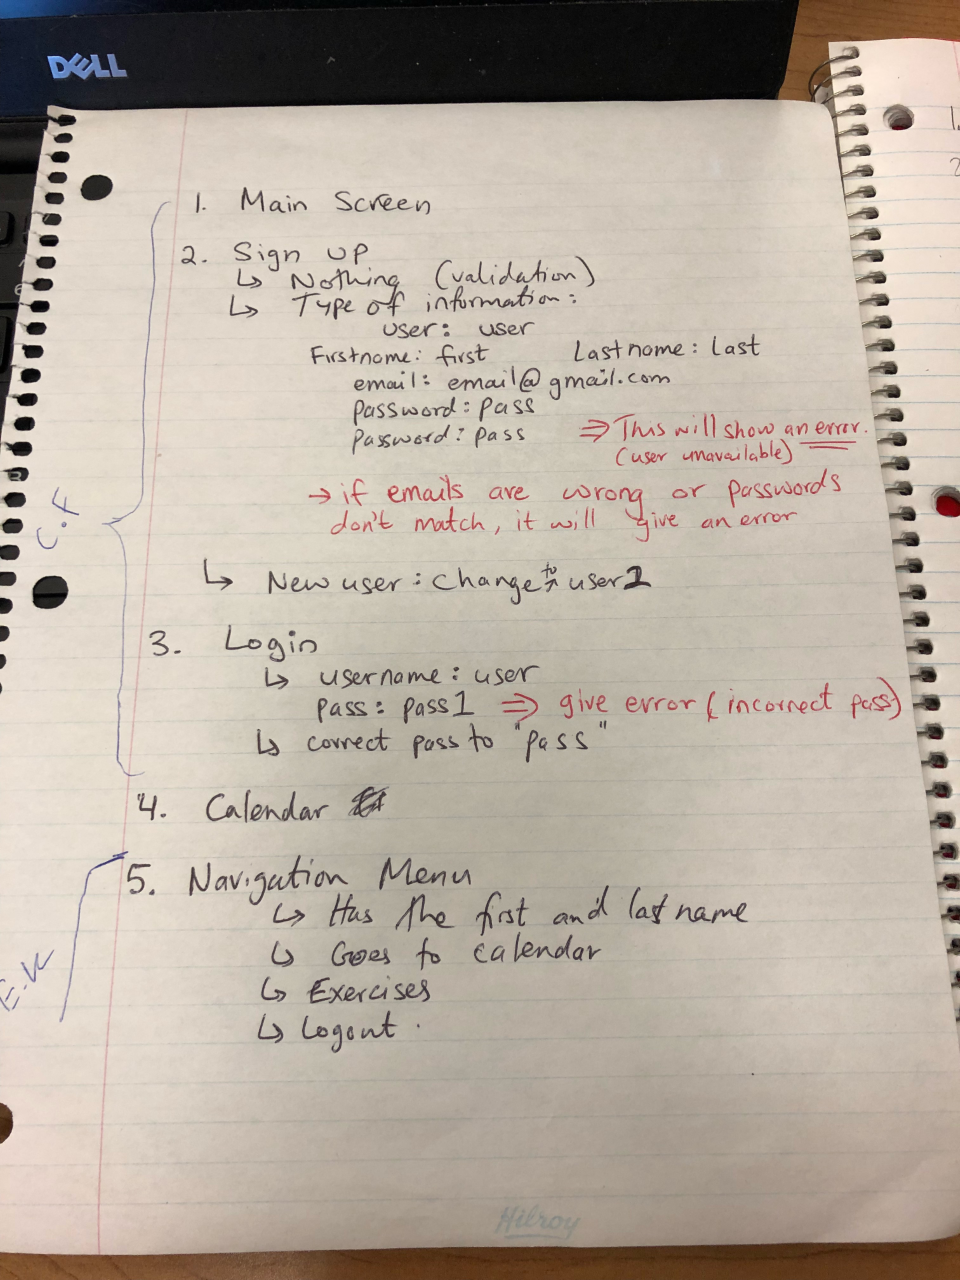 DELL
1. Main Screen
2. Sign up
↳ Nothing (validation)
↳ Type of information:
user: user
Firstname: first Lastname: last
email: email@gmail.com
password: pass
password: pass ⇒ This will show an error.
(user unavailable)
→ if emails are wrong or passwords
don't match, it will give an error
↳ New user: change to user1
3. Login
↳ username: user
pass: pass1 ⇒ give error (incorrect pass)
↳ correct pass to "pass"
4. Calendar
5. Navigation Menu
↳ Has the first and last name
↳ Goes to calendar
↳ Exercises
↳ Logout.
C.F
E.K
Hilroy
1.
2